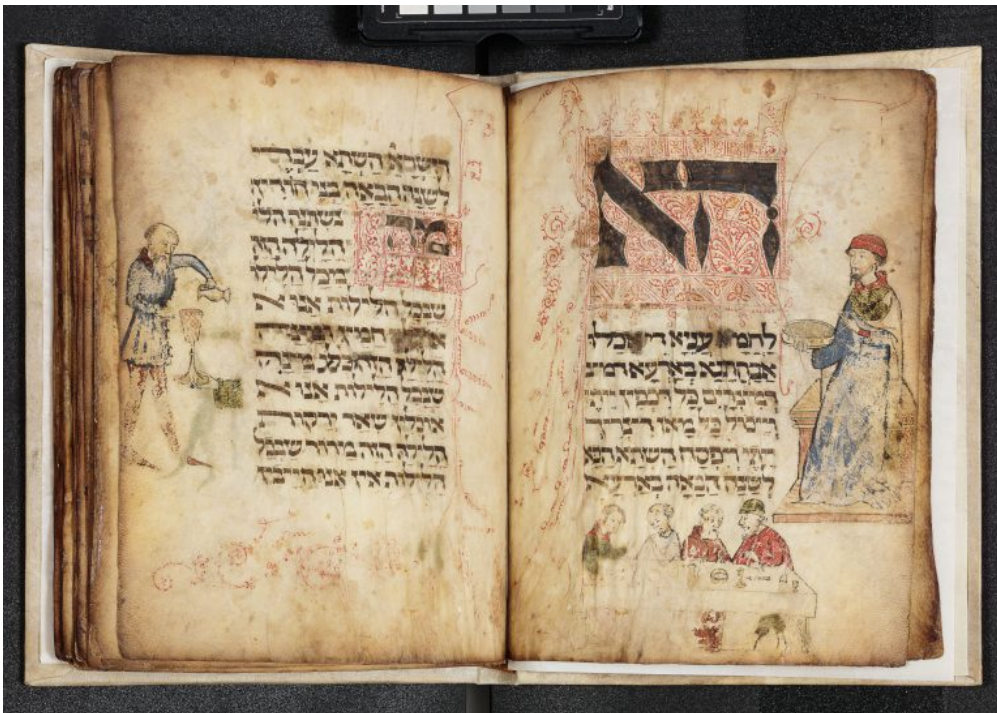 הא
לחמא עניא די אכלו
אבהתנא בארעא דמצ
דמצרים כל דכפין ייתי
וייכול כל מאן דצריך
ייתי ויפסח השתא הכא
לשנה הבאה בארעא
השתא עבדי
לשנה הבאה בני חורין
מה נשתנה הלי
הלילה הזה
מכל הלילו
שבכל הלילות אנו א
חמץ ומצה
הלילה הזה
שבכל הלילות אנו א
אוכלין שאר ירקות
הלילה הזה מרור שבכל
הלילות אין אנו חייבין